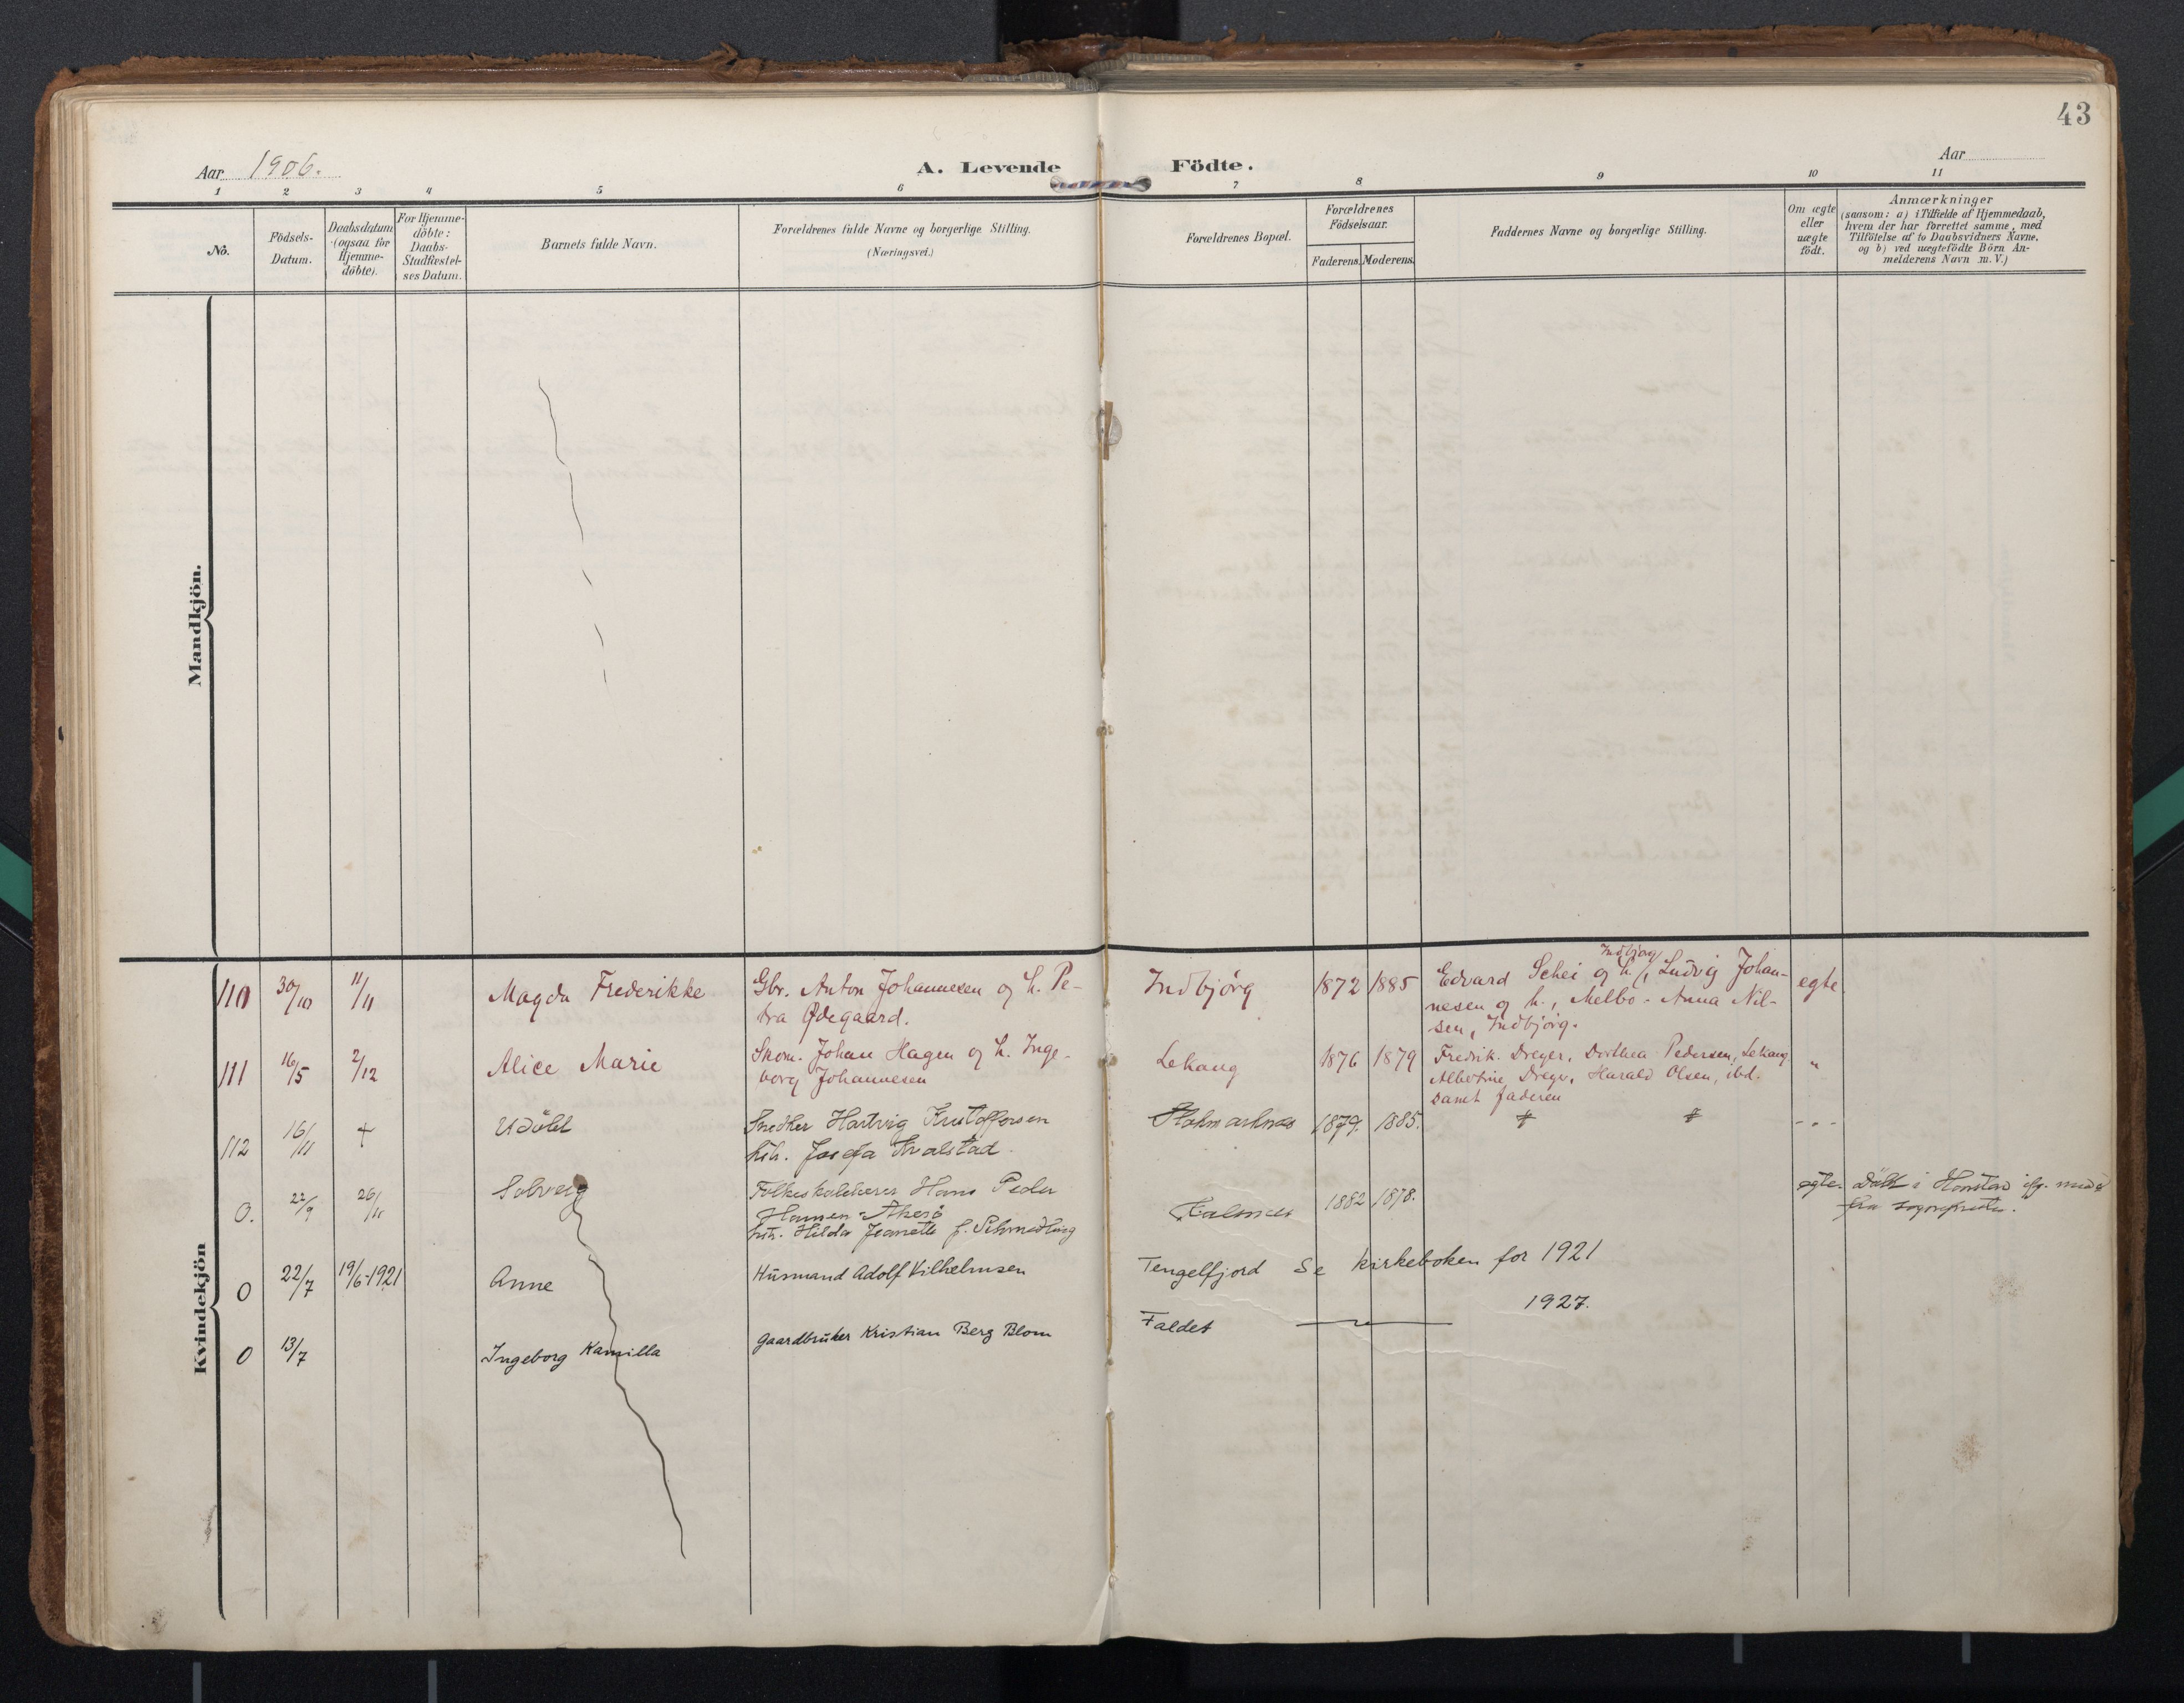 43
Aar 1906.
A. Levende Födte.
Aar
1 2 3 4 5 6 7 8 9 10 11
No.
Födsels-
Datum.
Daabsdatum
(ogsaa for
Hjemme-
döbte).
For Hjemme-
döbte:
Daabs-
Stadfæstel-
ses Datum.
Barnets fulde Navn.
Forældrenes fulde Navne og borgerlige Stilling.
(Næringsvei.)
Forældrenes Bopæl.
Forældrenes
Födselsaar.
Faderens. Moderens.
Faddernes Navne og borgerlige Stilling.
Om ægte
eller
uægte
födt.
Anmærkninger
(saasom: a) i Tilfælde af Hjemmedaab,
hvem der har forrettet samme, med
Tilföielse af to Daabsvidners Navne,
og b) ved uægtefödte Börn An-
melderens Navn m. V.)
Mandkjön.
Kvindekjön
110 30/10 11/11 Magda Frederikke
Gbr. Anton Johannesen og h. Pe-
tra Ødegaard.
Indbjørg 1872 1885
Indbjørg
Edvard Schei og h., Ludvig Johan-
nesen og h., Melbo - Anna Nil-
sen, Indbjørg.
egte
111 16/5 2/12 Alice Marie
Skom. Johan Hagen og h. Inge-
borg Johannesen
Lekang 1876 1879
Fredrik. Dreyer, Dorthea Pedersen, Lekang
Albertine Dreyer, Harald Olsen, ibd.
samt faderen
"
112 16/11 + Udöbt
Snedker Hartvig Kristoffersen
hstr. Josefa Kvalstad.
Stokmarknes 1879. 1885. + + - " -
0. 22/9 26/11 Solveig
Folkeskolelærer Hans Peder
Hansen - Akerö
hstr. Hilda Jeanette f. Schmedling
1882 1878.
egte. Döbt i
fra sogneprest.
0 22/7 19/6-1921 Anne
Husmand Adolf Vilhelmsen
Tengelfjord Se kirkeboken for 1921
0 13/7 Ingeborg Kamilla
Gaardbruker Kristian Berg Blom
Faldet — " — 1927.